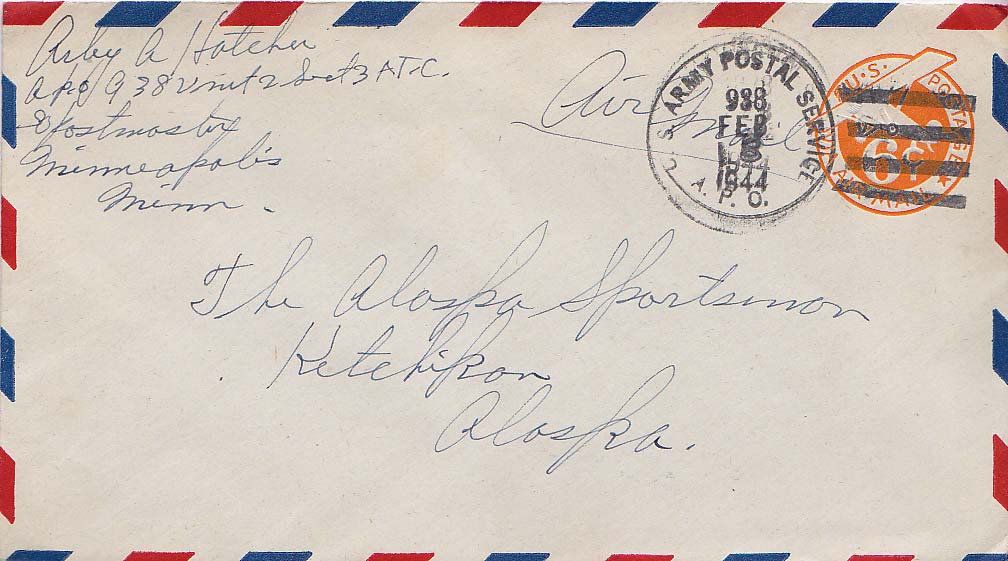 Arby A Hatcher
APO 938 Unit 2 Sect 3 A.T.C.
% Postmaster
Minneapolis
Minn.
Air Mail
U.S. ARMY POSTAL SERVICE
938
FEB
1944
A.P.O.
U.S. POSTAGE
6¢
AIR MAIL
The Alaska Sportsman
Ketchikan
Alaska.